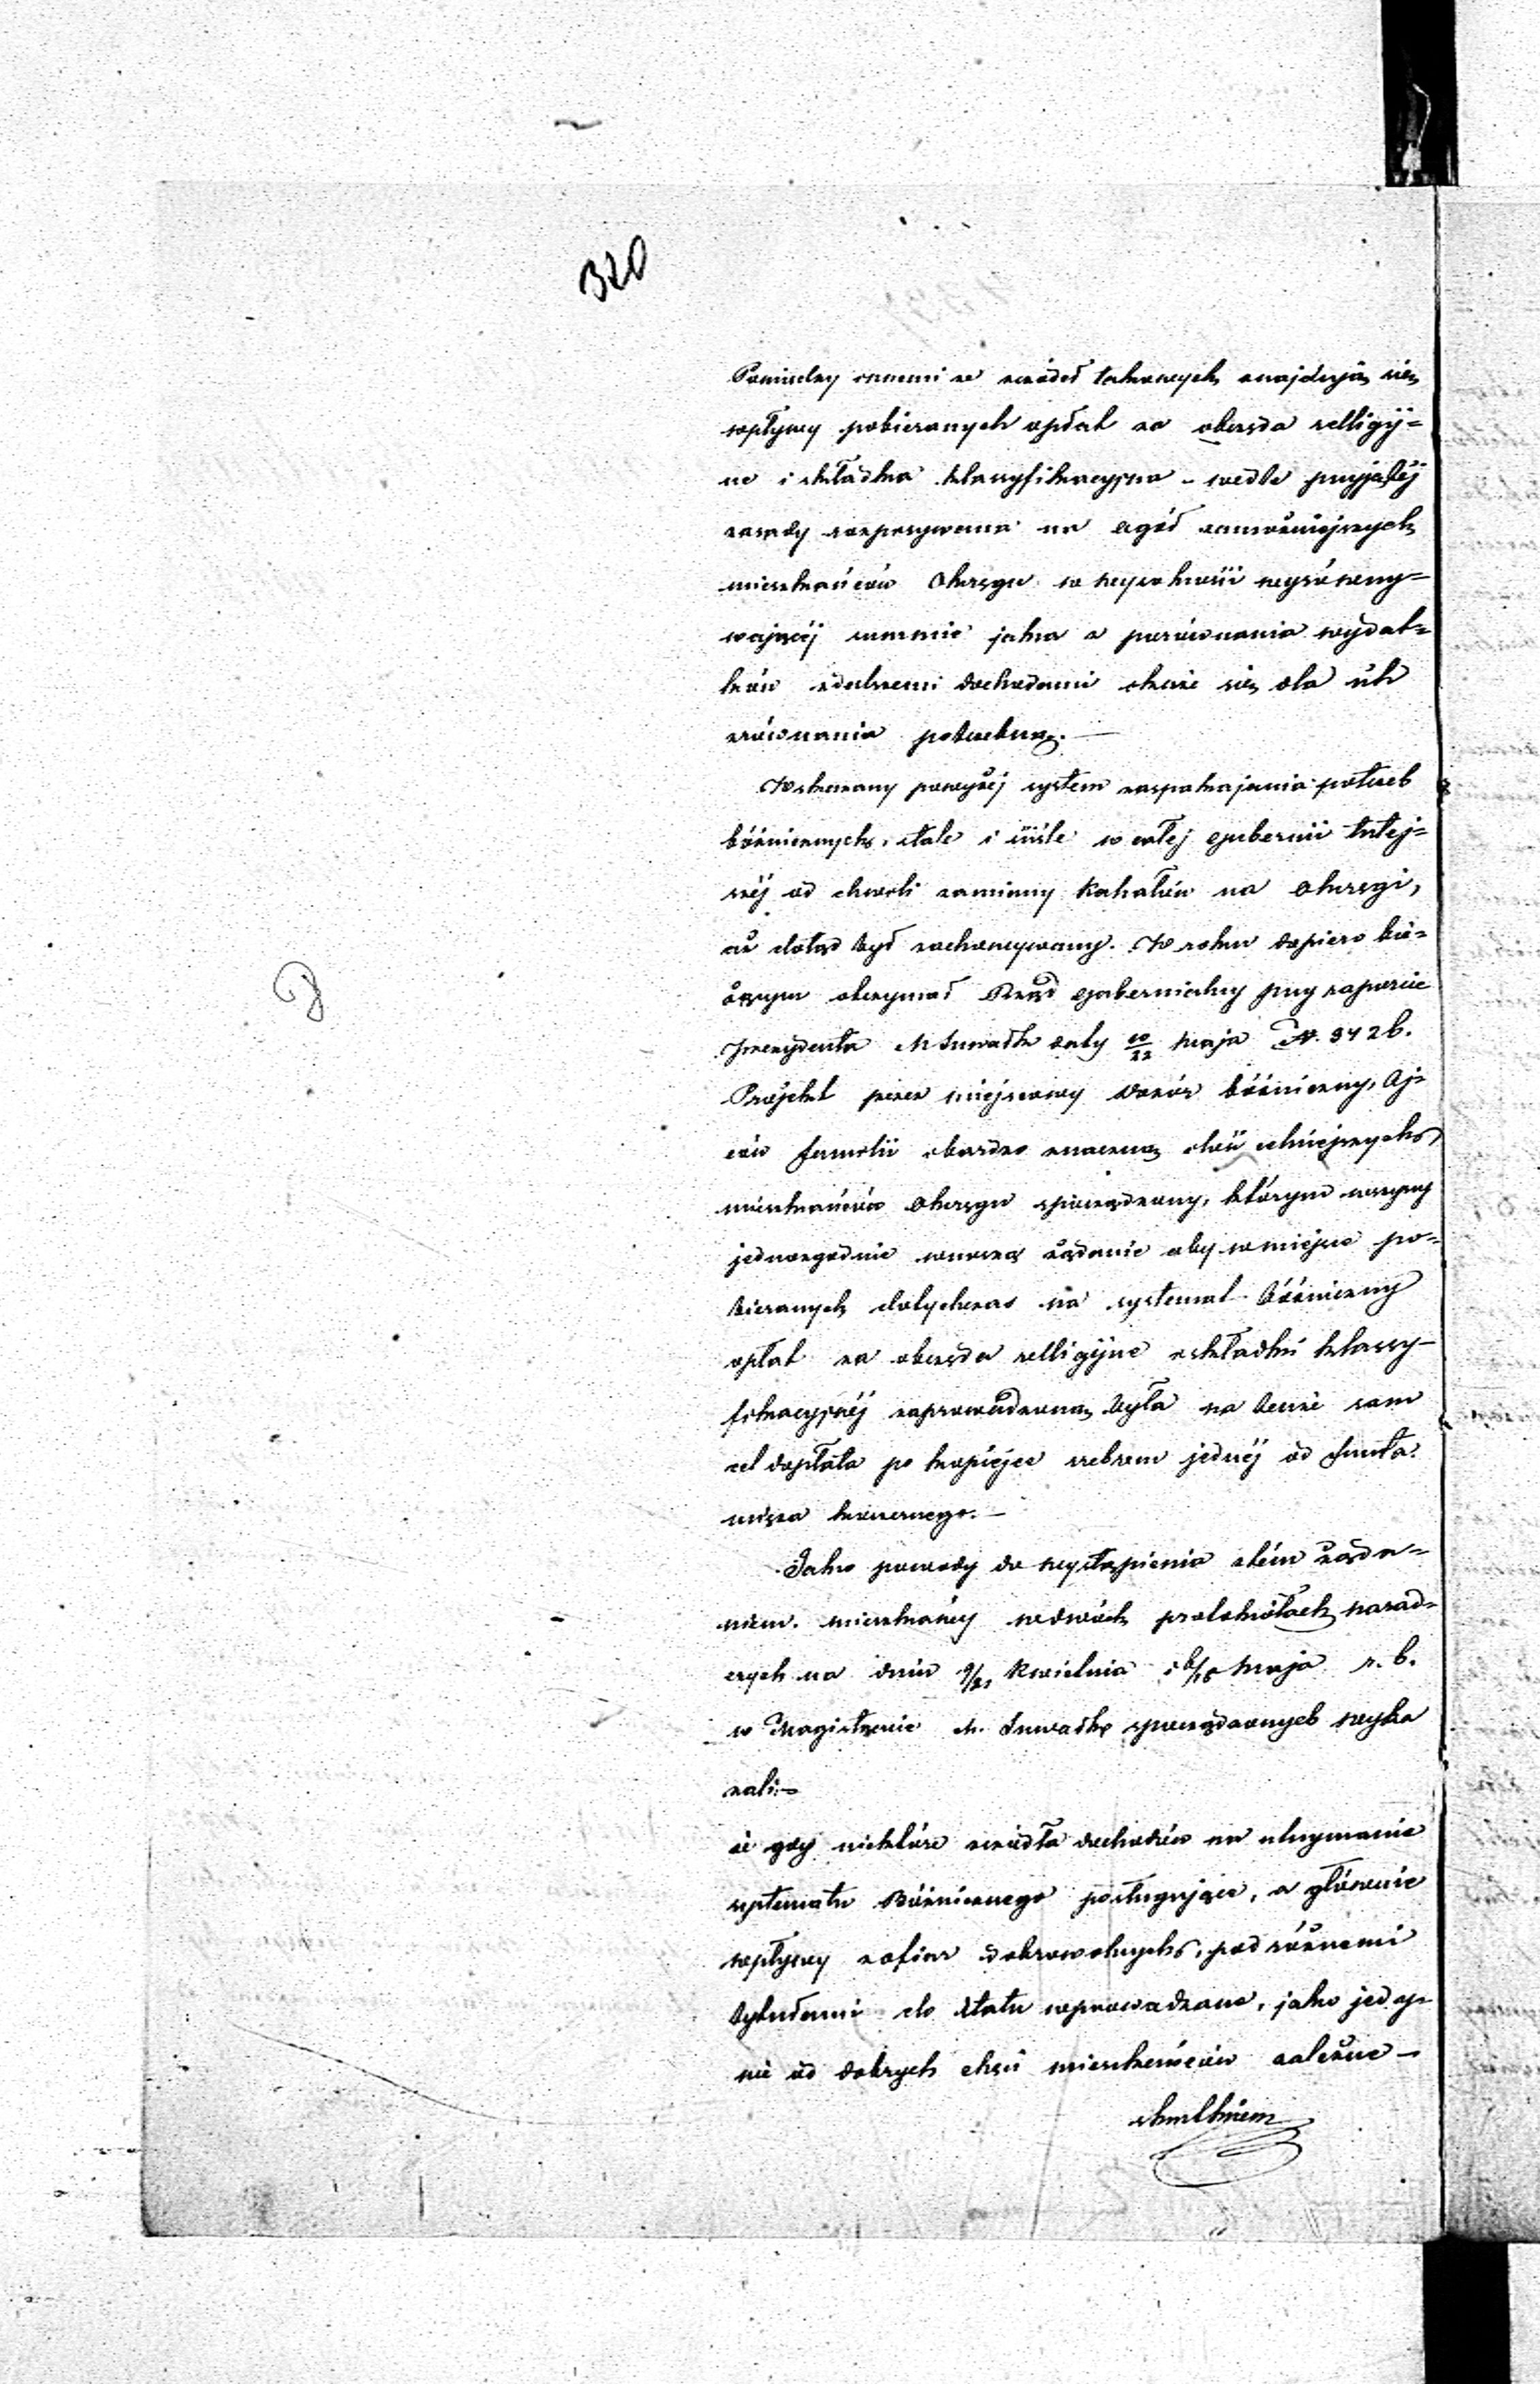 320
Pomiędzy innemi ze źródeł takowych znajdują się
wpływy pobieranych opłat za obrzęda relligij=
ne i składka klasyfikacyjna - wedle przyjętéj
zasady rozpisywana na ogół zamożniejszych
mieszkańców Okręgu w wysokości wyrówny=
wającéj summie jaka z porównania wydat=
ków z dalszemi dochodami okaże się dla ich
zrównania potrzebną. —
Wskazany powyżéj system zaspokajania potrzeb
bóżnicznych, stale i ściśle w całej gubernii tutej=
széj od chwili zamiany Kahałów na Okręgi,
aż dotąd był zachowywany. W roku dopiero bie=
żącym otrzymał Rząd Gubernialny przy raporcie
Prezydenta M Suwałk daty 10/22 Maja N. 3426.
Projekt przez miejscowy Dozór bóżniczny, Oj=
ców familii i bardzo znaczną ilość celniejszych
mieszkańców Okręgu sporządzony, którym wszyscy
jednozgodnie wnoszą żądanie aby w miejsce po=
bieranych dotychczas na systemat bóżniczny
opłat za obrzęda relligijne i składki klassy=
fikacyjnéj zaprowadzoną była na tenże sam
cel dopłata po kopiejce srebrem jednéj od funta
mięsa koszernego. —
Jako powody do wystąpienia z tém żąda=
niem mieszkańcy w dwóch protokółach narad=
czych na dniu 9/21 Kwietnia i 6/18 Maja r. b.
w Magistracie M. Suwałk sporządzonych wyka
zali: —
że gdy niektóre źródła dochodów na utrzymanie
systematu Bóżnicznego posługujące, a głównie
wpływy z ofiar dobrowolnych, pod różnemi
tytułami do Etatu wprowadzane, jako jedy=
nie od dobrych chęci mieszkańców zależne —
skutkiem